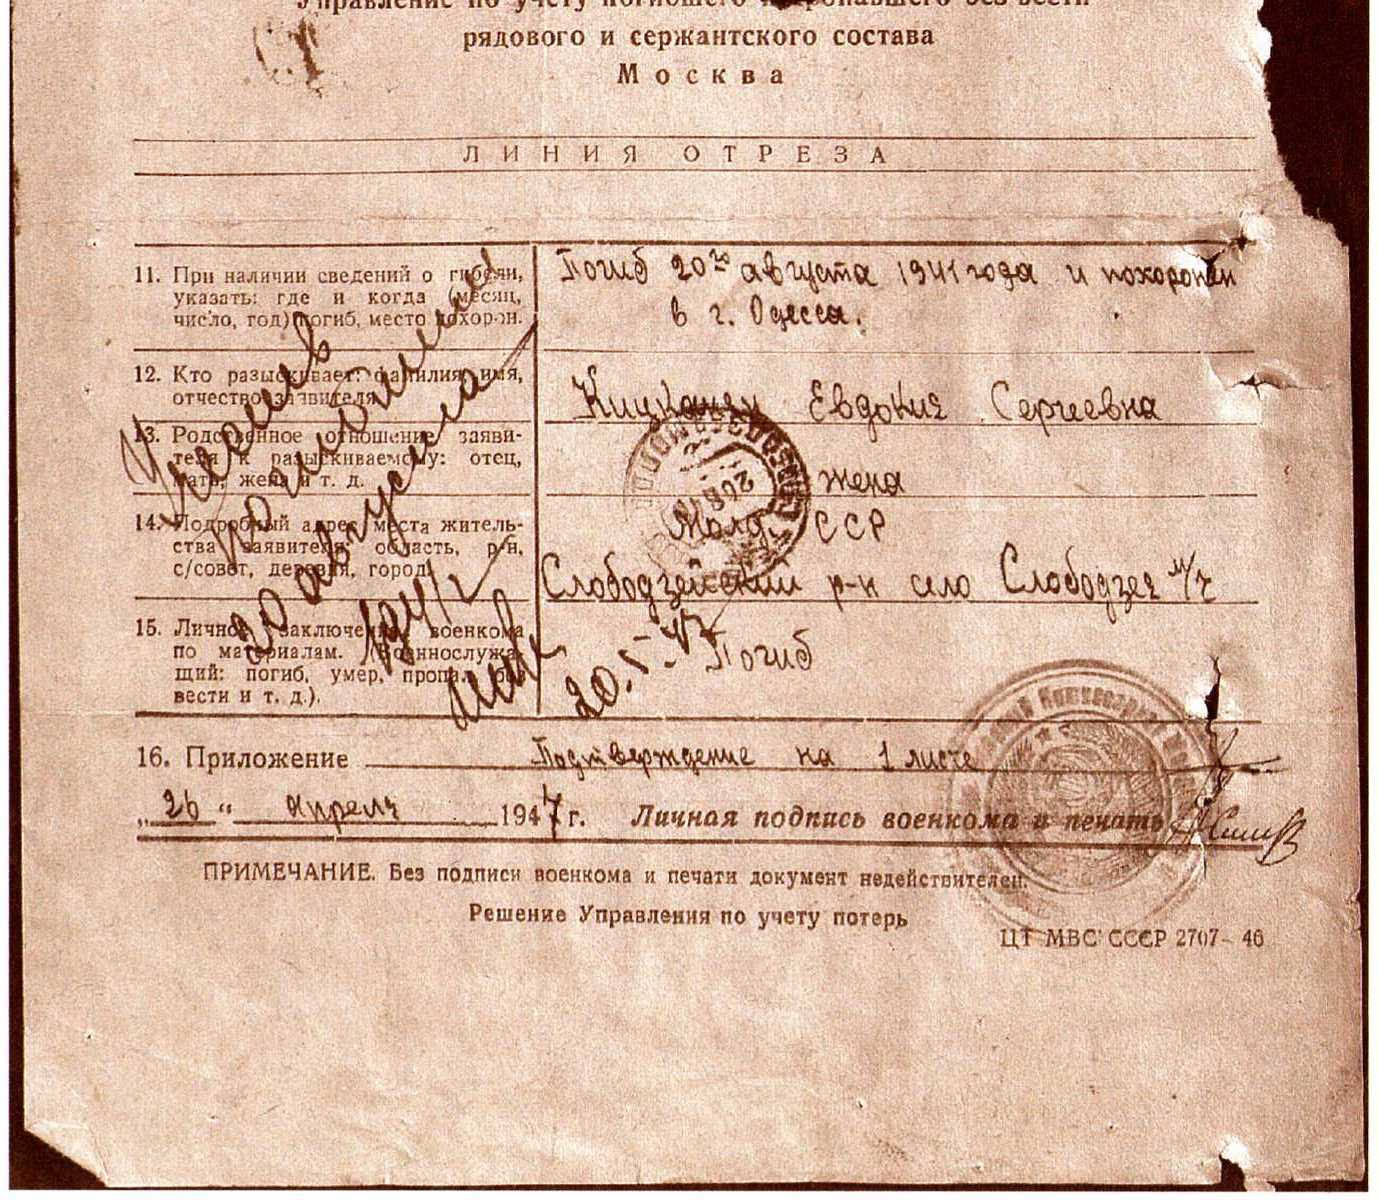 Управление по учету погибшего и пропавшего без вести
рядового и сержантского состава
Москва
ЛИНИЯ ОТРЕЗА
11. При наличии сведений о гибели,
указать: где и когда (месяц,
число, год) погиб, место похорон.
Погиб 20го августа 1941 года и похоронен
в г. Одесса.
12. Кто разыскивает: фамилия, имя,
отчество заявителя
Кицканен Евдокия Сергеевна
13. Родственное отношение заяви-
теля к разыскиваемому: отец,
мать, жена и т. д.
жена
14. Подробный адрес места житель-
ства заявителя: область, р-н,
с/совет, деревня, город
Молд. ССР
Слободзейский р-н село Слободзея м/ч
15. Личное заключение военкома
по материалам. (Военнослужа-
щий: погиб, умер, пропал без
вести и т. д.).
Погиб
20 августа
1941 г
20.5.47
16. Приложение Подтверждение на 1 листе
„26“ апреля 1947 г. Личная подпись военкома и печать
ПРИМЕЧАНИЕ. Без подписи военкома и печати документ недействителен.
Решение Управления по учету потерь
ЦТ МВС СССР 2707—46